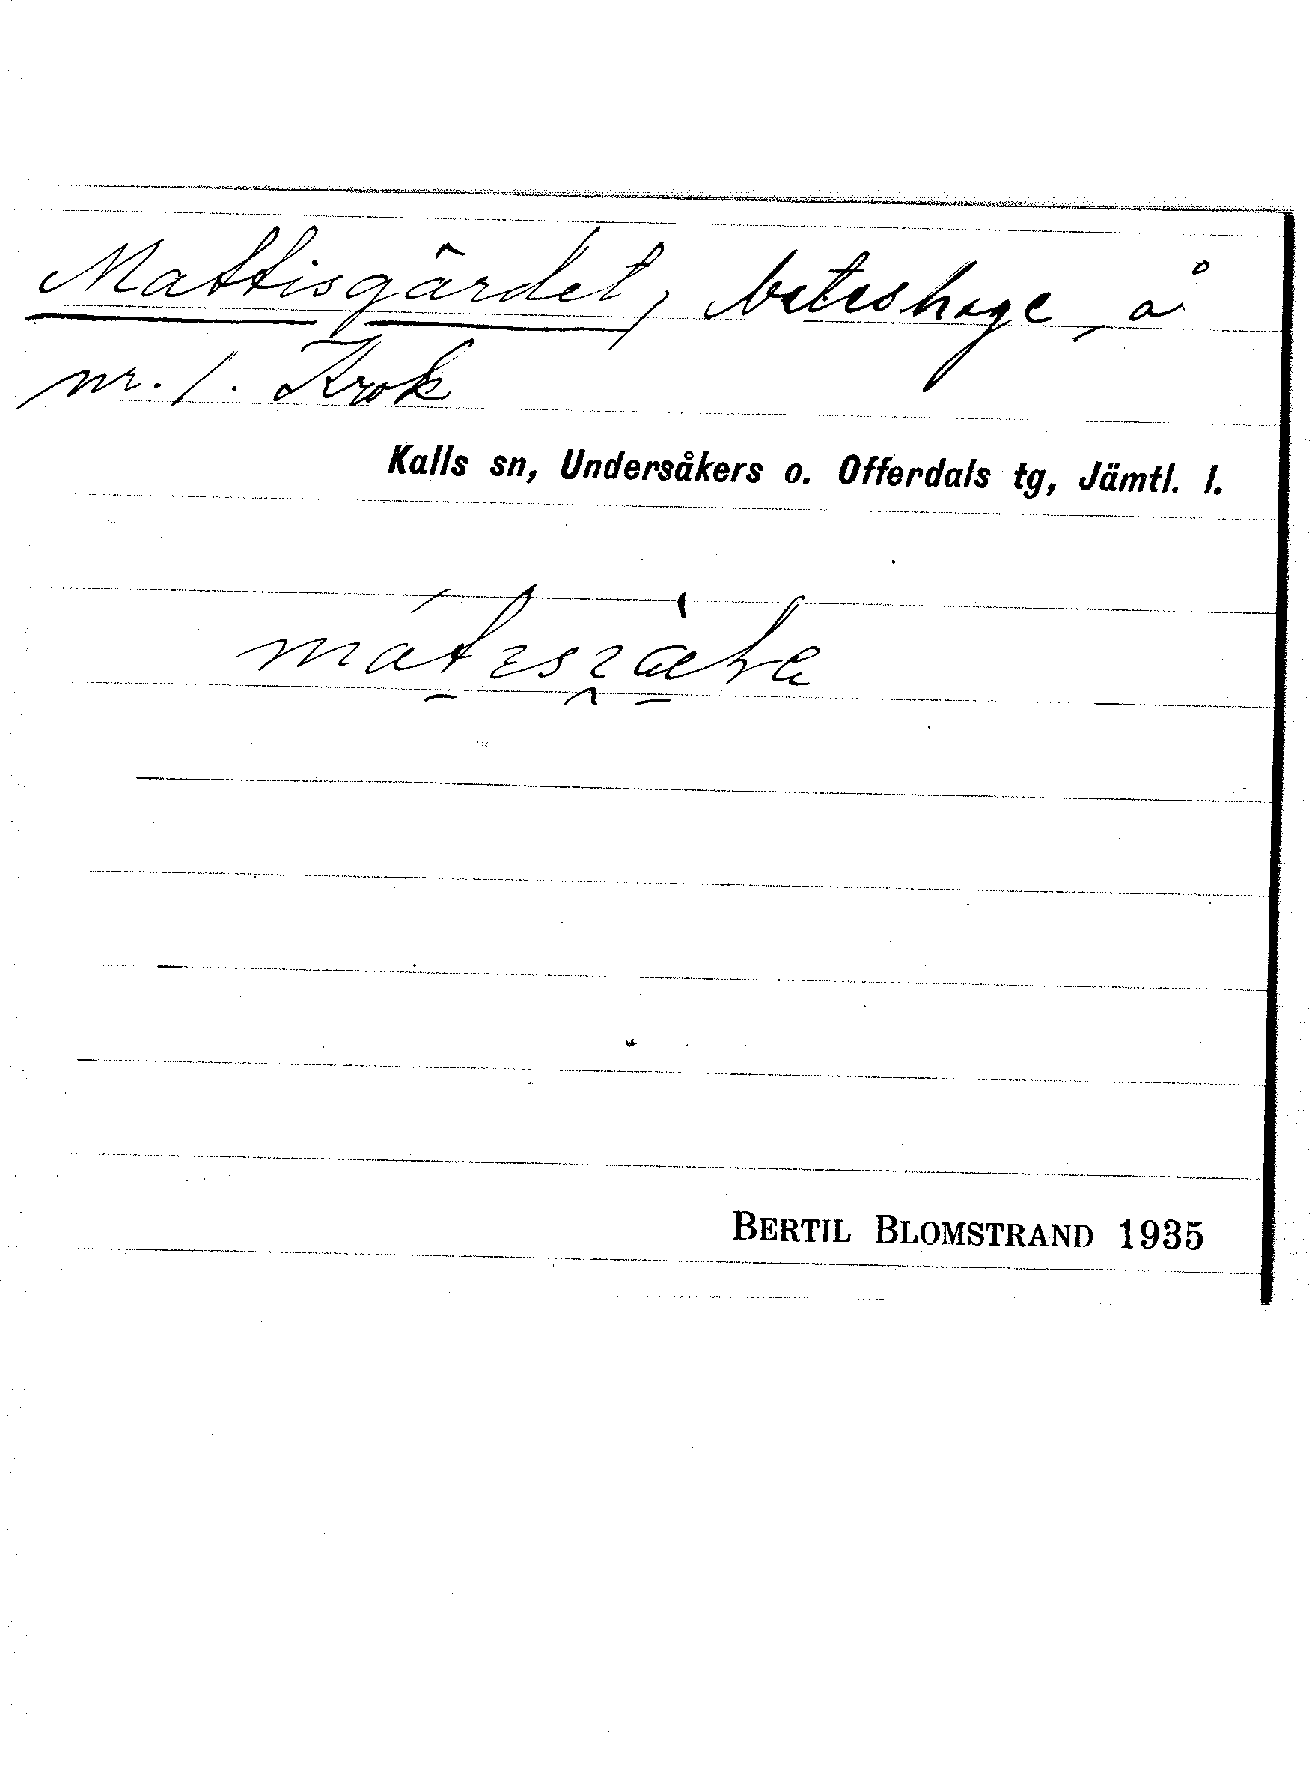 Mattisgärdet, beteshage, å
nr. 1. Krok
Kalls sn, Undersåkers o. Offerdals tg, Jämtl. l.
BERTIL BLOMSTRAND 1935